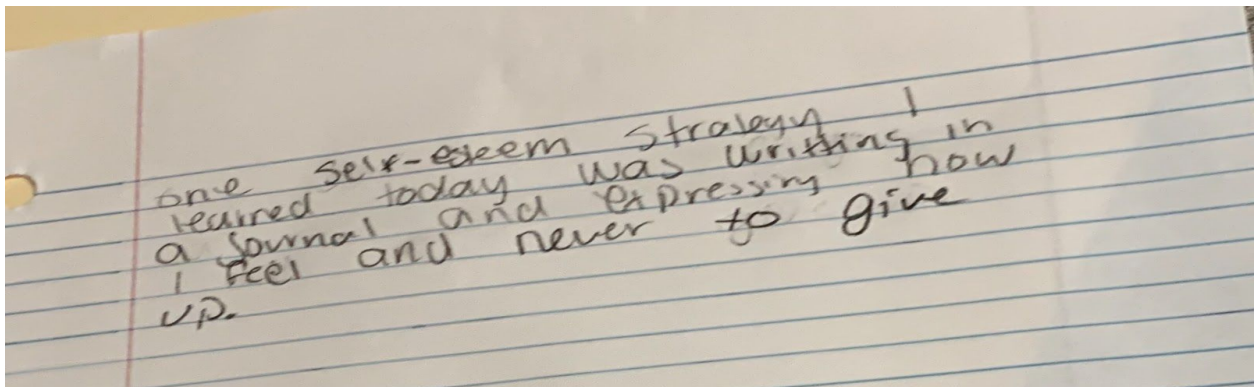 one self-esteem strategy I
learned today was writting in
a journal and expressing how
I feel and never to give
up.